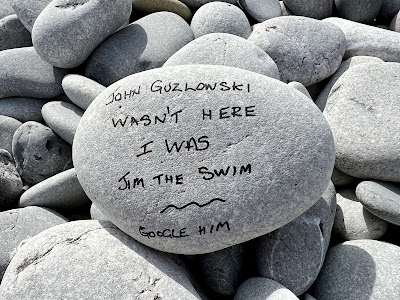 JOHN GUZLOWSKI
WASN'T HERE
I WAS
JIM THE SWIM
GOOGLE HIM